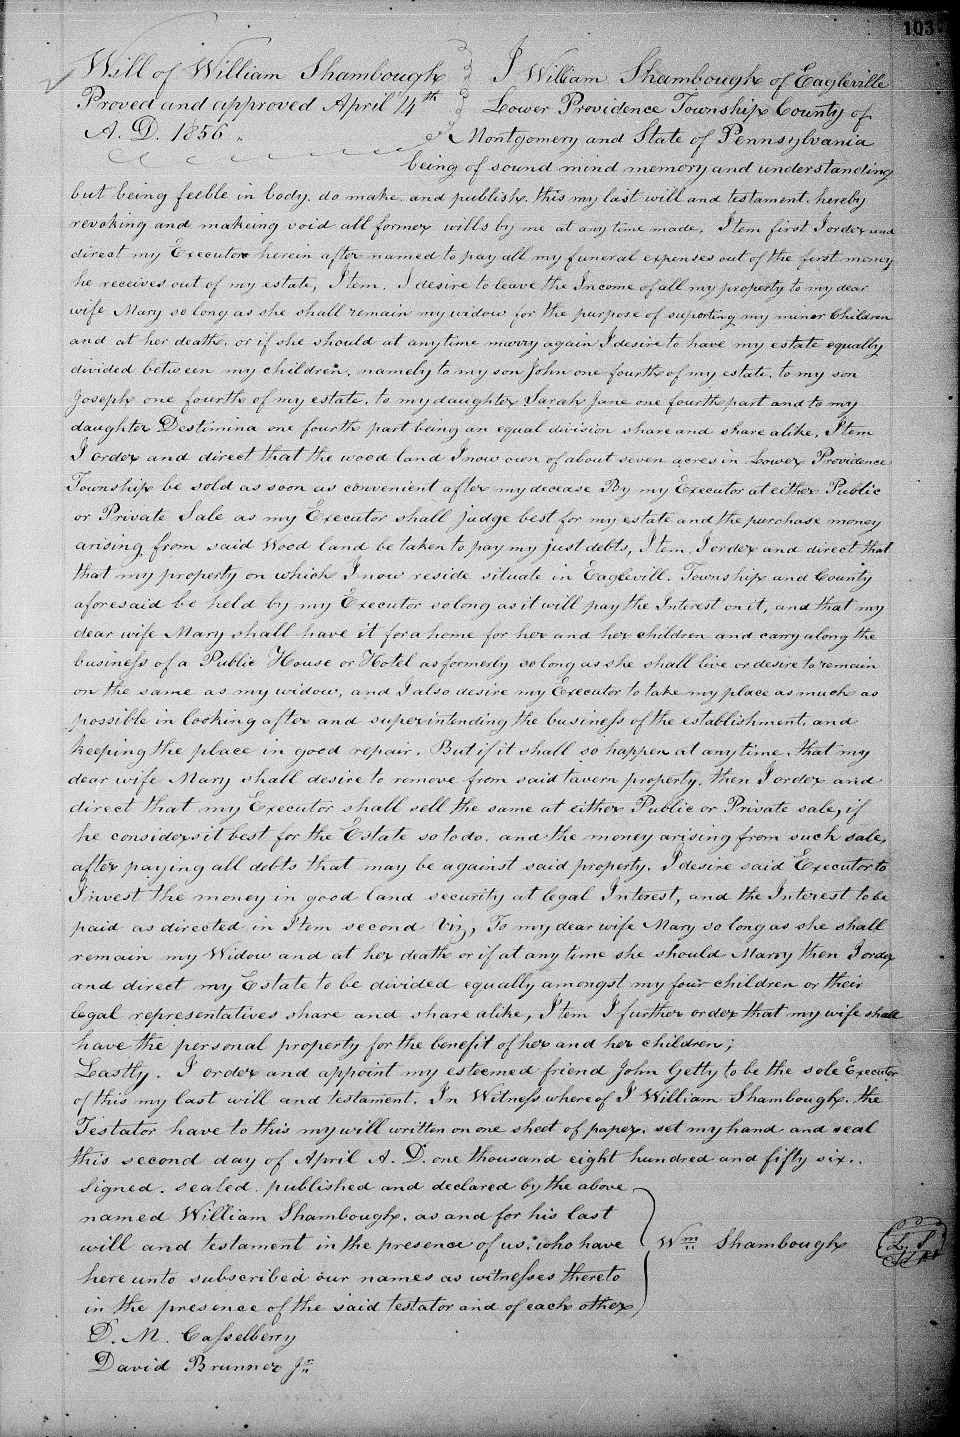 103
Will of William Shambough
Proved and approved April 14th
A. D. 1856
I William Shambough of Eagleville
Lower Providence Township County of
Montgomery and State of Pennsylvania
being of sound mind memory and understanding
but being feeble in body, do make and publish, this my last will and testament, hereby
revoking and makeing void all former wills by me at any time made, Item first I order and
direct my Executor herein after named to pay all my funeral expenses out of the first money
he receives out of my estate, Item. I desire to leave the Income of all my property to my dear
wife Mary so long as she shall remain my widow for the purpose of suporting my minor Children
and at her death, or if she should at any time marry again I desire to have my estate equally
divided between my children, namely to my son John one fourth of my estate, to my son
Joseph one fourth of my estate, to my daughter Sarah Jane one fourth part and to my
daughter Destimina one fourth part being an equal division share and share alike, Item
I order and direct that the wood land I now own of about seven acres in Lower Providence
Township be sold as soon as convenient after my decease By my Executor at either Public
or Private Sale as my Executor shall judge best for my estate and the purchase money
arising from said Wood land be taken to pay my just debts, Item, I order and direct that
that my property on which I now reside situate in Eaglevill. Township and County
aforesaid be held by my Executor so long as it will pay the Interest on it, and that my
dear wife Mary shall have it for a home for her and her children and carry along the
business of a Public House or Hotel as formerly so long as she shall live or desire to remain
on the same as my widow, and I also desire my Executor to take my place as much as
possible in looking after and superintending the business of the establishment, and
keeping the place in good repair. But if it shall so happen at any time, that my
dear wife Mary shall desire to remove from said tavern property, then I order and
direct that my Executor shall sell the same at either Public or Private sale, if
he considers it best for the Estate so to do, and the money arising from such sale,
after paying all debts that may be against said property, I desire said Executor to
Invest the money in good land security at legal Interest, and the Interest to be
paid as directed in Item second Viz, To my dear wife Mary so long as she shall
remain my Widow and at her death or if at any time she should Marry then I order
and direct my Estate to be divided equally amongst my four children or their
legal representatives share and share alike, Item I further order that my wife shall
have the personal property for the benefit of her and her children;
Lastly. I order and appoint my esteemed friend John Getty to be the sole Executor
of this my last will and testament. In Witness whereof I William Shambough, the
Testator have to this my will written on one sheet of paper, set my hand and seal
this second day of April A. D. one thousand eight hundred and fifty six.
Signed, sealed, published and declared by the above
named William Shambough, as and for his last
will and testament in the presence of us, who have
here unto subscribed our names as witnesses thereto
in the presence of the said testator and of each other
Wm Shambough L S
D. M. Casselberry
David Brunner Jr